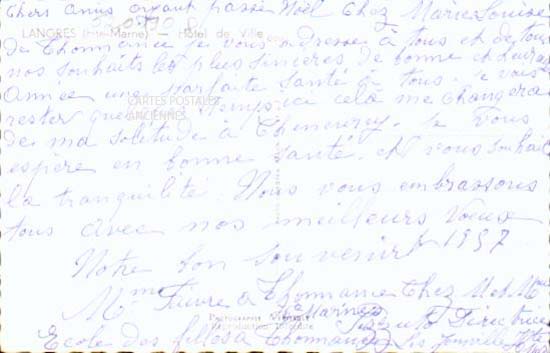 Chers amis ayant passé Noël Chez Marie Louise
LANGRES (Hte-Marne) — Hôtel de Ville
de Thonnance je vous adresse à tous et de tous
nos souhaits les plus sincères de bonne et heureuse
Année une parfaite santé à tous. Je vais
rester quelque temps ici celà me changera
CARTES POSTALES
ANCIENNES
de ma solitude à Je vous
espère en bonne santé. et vous souhaite
la tranquilité. Nous vous embrassons
tous avec nos meilleurs Voeux
Notre bon souvenir 1957
Mme Fèvre à Thonnance Chez M et Mme
Directrice
PHOTOGRAPHIE VÉRITABLE
Reproduction interdite
Ecole des filles à Thonnance les Joinville